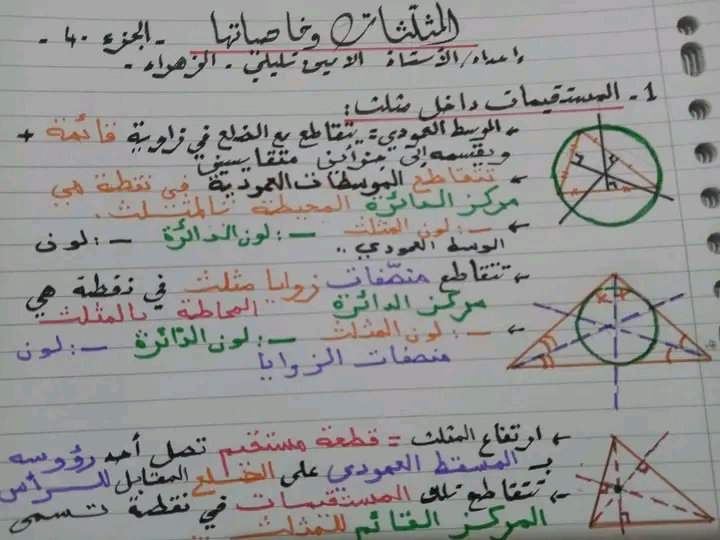 المثلثات وخاصياتها - الجزء 40 -
اعداد/الأستاذ الامين نليلي - الزهراء -
1 - المستقيمات داخل مثلث:
← الموسط العمودي = يتقاطع مع الضلع في زاوية قائمة +
ويقسمه إلى جزأين متقايسين
← تتقاطع الموسطات العمودية في نقطة هي
مركز الدائرة المحيطة بالمثلث.
← -: لون المثلث -: لون الدائرة -: لون
الوسط العمودي ..
← تتقاطع منصّفات زوايا مثلث في نقطة هي
مركز الدائرة المحاطة بالمثلث
← -: لون المثلث -: لون الدّائرة -: لون
منصفات الزوايا
← ارتفاع المثلث = قطعة مستقيم تصل أحد رؤوسه
بـ المسقط العمودي على الضلع المقابل للرأس
← تتقاطع تلك المستقيمات في نقطة تسمى
المركز القائم للمثلث